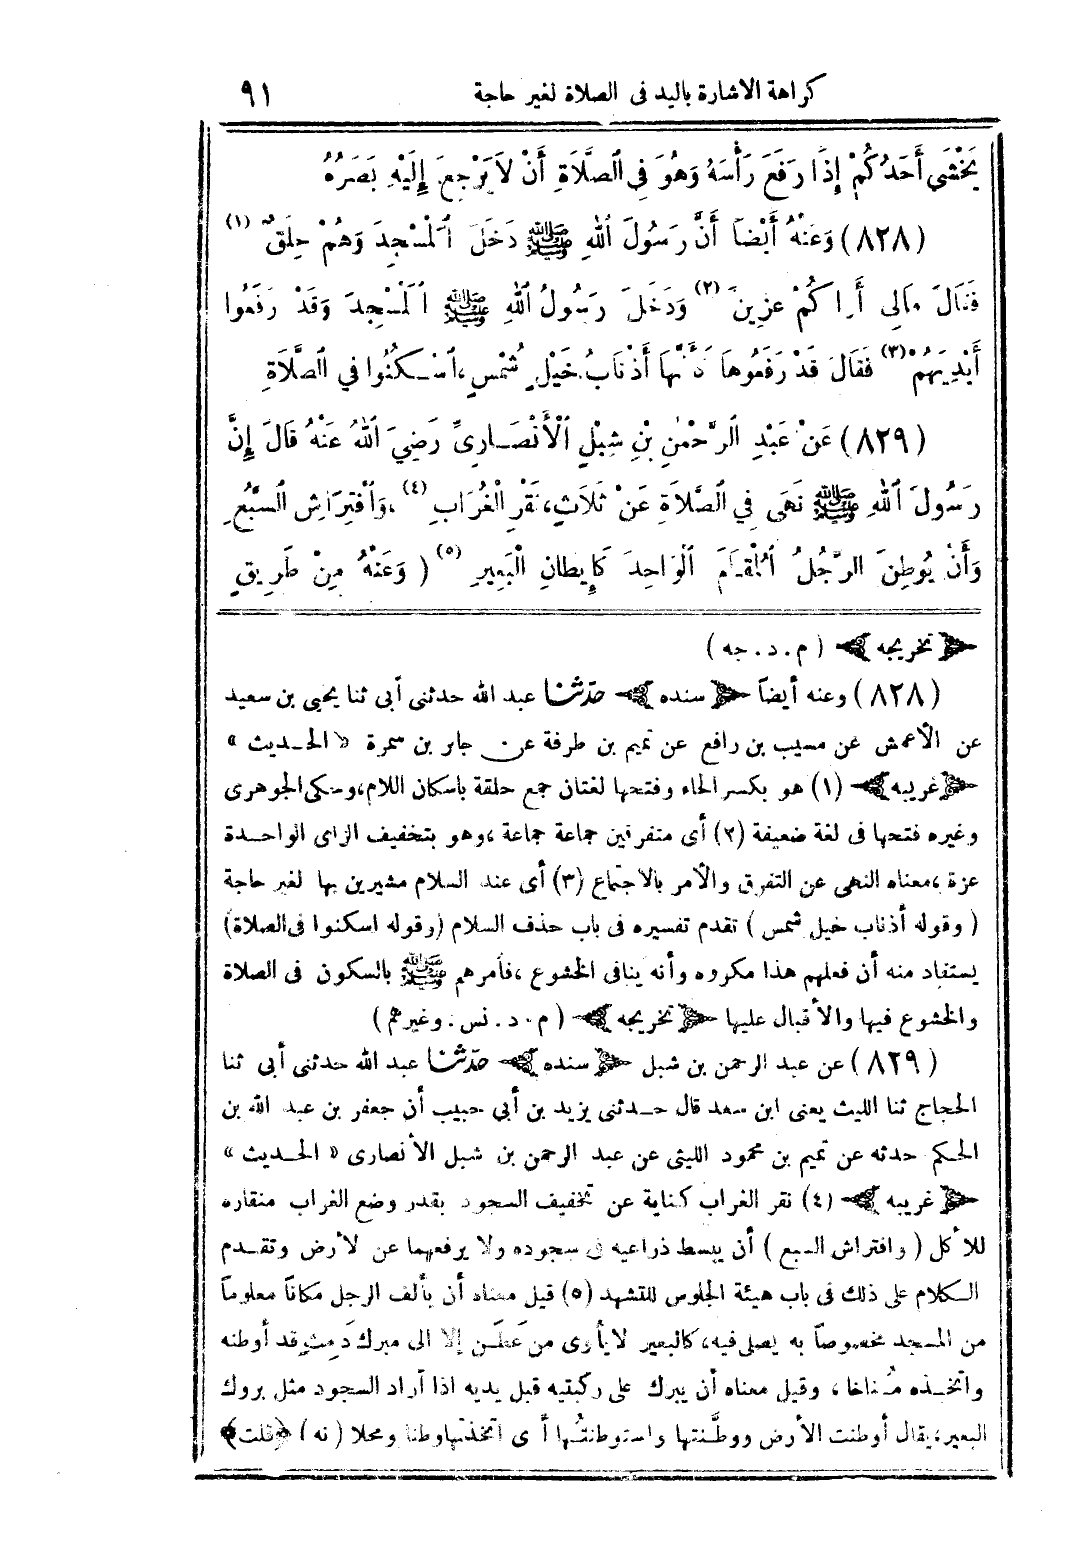 كراهة الاشارة باليد فى الصلاة لغير حاجة ٩١
يَخْشَى أَحَدُكُمْ إِذَا رَفَعَ رَأْسَهُ وَهُوَ فِى الصَّلَاةِ أَنْ لَا يَرْجِعَ إِلَيْهِ بَصَرُهُ
(٨٢٨) وَعَنْهُ أَيْضًا أَنَّ رَسُولَ اللهِ ﷺ دَخَلَ الْمَسْجِدَ وَهُمْ حِلَقٌ (١)
فَقَالَ مَالِى أَرَاكُمْ عِزِينَ (٢) وَدَخَلَ رَسُولُ اللهِ ﷺ الْمَسْجِدَ وَقَدْ رَفَعُوا
أَيْدِيَهُمْ (٣) فَقَالَ قَدْ رَفَعُوهَا كَأَنَّهَا أَذْنَابُ خَيْلٍ شُمْسٍ، اُسْكُنُوا فِى الصَّلَاةِ
(٨٢٩) عَنْ عَبْدِ الرَّحْمٰنِ بْنِ شِبْلٍ الْأَنْصَارِىِّ رَضِيَ اللهُ عَنْهُ قَالَ إِنَّ
رَسُولَ اللهِ ﷺ نَهَى فِي الصَّلَاةِ عَنْ ثَلَاثٍ، نَقْرِ الْغُرَابِ (٤) ، وَافْتِرَاشِ السَّبُعِ
وَأَنْ يُوطِنَ الرَّجُلُ الْمَقَامَ الْوَاحِدَ كَإِيطَانِ الْبَعِيرِ (٥) ( وَعَنْهُ مِنْ طَرِيقٍ
﴿ تخريجه ﴾ ( م . د . جه )
(٨٢٨) وعنه أيضاً ﴿ سنده ﴾ حدّثنا عبد الله حدثنى أبى ثنا يحيى بن سعيد
عن الأعمش عن مسيب بن رافع عن تميم بن طرفة عن جابر بن سمرة « الحديث »
﴿ غريبه ﴾ (١) هو بكسر الحاء وفتحها لغتان جمع حلقة باسكان اللام، وحكى الجوهرى
وغيره فتحها فى لغة ضعيفة (٢) أى متفرقين جماعة جماعة ، وهو بتخفيف الزاى الواحدة
عزة ، معناه النهى عن التفرق والأمر بالاجتماع (٣) أى عند السلام مشيرين بها لغير حاجة
( وقوله أذناب خيل شمس ) تقدم تفسيره فى باب حذف السلام (وقوله اسكنوا فى الصلاة)
يستفاد منه أن فعلهم هذا مكروه وأنه ينافى الخشوع ، فأمرهم ﷺ بالسكون فى الصلاة
والخشوع فيها والأقبال عليها ﴿ تخريجه ﴾ ( م . د . نس . وغيرهم )
(٨٢٩) عن عبد الرحمن بن شبل ﴿ سنده ﴾ حدّثنا عبد الله حدثنى أبى ثنا
الحجاج ثنا الليث يعنى ابن سعد قال حدثنى يزيد بن أبي حبيب أن جعفر بن عبد الله بن
الحكم حدثه عن تميم بن محمود الليثى عن عبد الرحمن بن شبل الأنصارى « الحديث »
﴿ غريبه ﴾ (٤) نقر الغراب كناية عن تخفيف السجود بقدر وضع الغراب منقاره
للأكل ( وافتراش السبع ) أن يبسط ذراعيه فى سجوده ولا يرفعهما عن الأرض وتقدم
الكلام على ذلك فى باب هيئة الجلوس للتشهد (٥) قيل معناه أن يألف الرجل مكاناً معلوماً
من المسجد مخصوصاً به يصلى فيه، كالبعير لا يأوى من عَطَن إلا الى مبرك دَمِث قد أوطنه
واتخذه مُناخا ، وقيل معناه أن يبرك على ركبتيه قبل يديه اذا أراد السجود مثل بروك
البعير، يقال أوطنت الأرض ووطَّنتها واستوطنتُها أى اتخذتها وطنا ومحلا ( نه ) ﴿قلت﴾